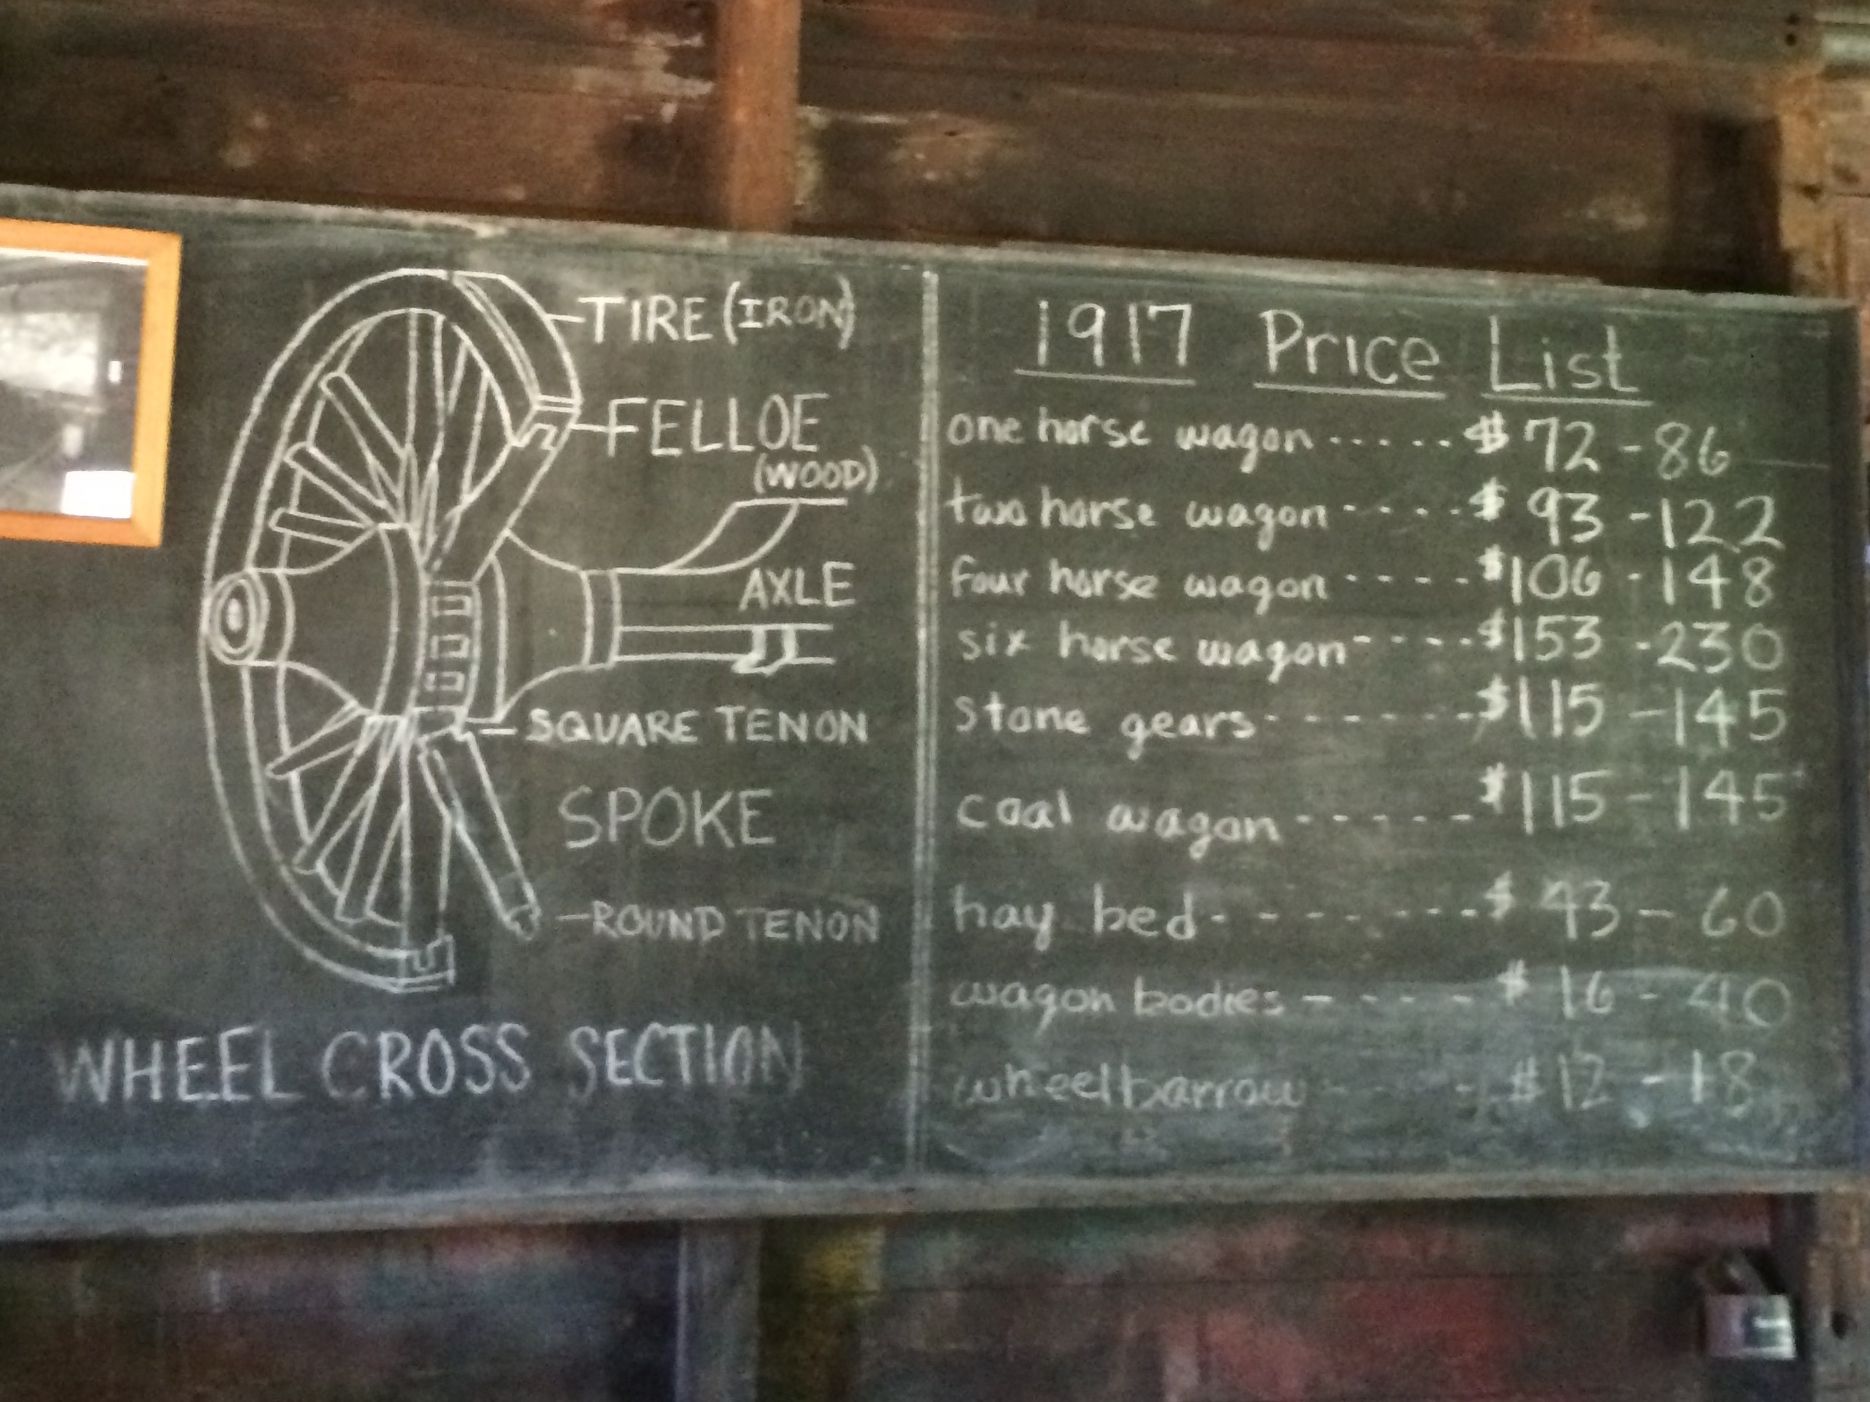 TIRE (IRON)
FELLOE
(WOOD)
AXLE
SQUARE TENON
SPOKE
ROUND TENON
WHEEL CROSS SECTION
1917 Price List
one horse wagon ..... $ 72 - 86
two horse wagon ---- $ 93 - 122
four horse wagon ---- $106 - 148
six horse wagon ---- $153 - 230
stone gears ------ $115 - 145
coal wagon ------ $115 - 145
hay bed -------- $ 43 - 60
wagon bodies ----- $ 16 - 40
wheelbarrow ---- $12 - 18